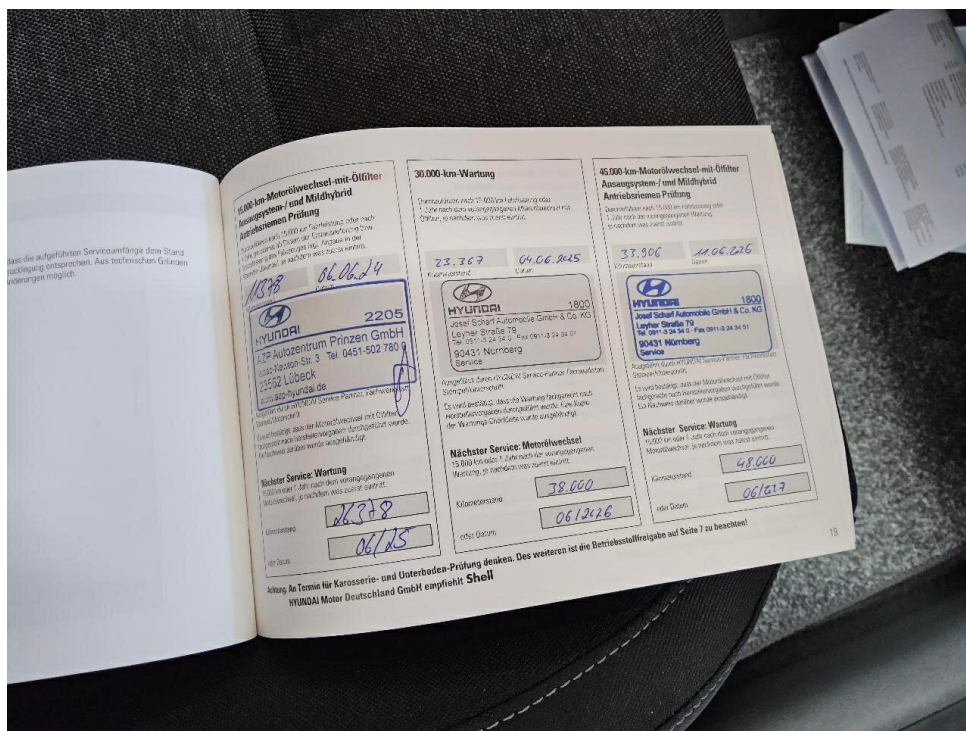 dass die aufgeführten Serviceumfänge dem Stand
rucklegung entsprechen. Aus technischen Gründen
nderungen möglich.
15.000-km-Motorölwechsel-mit-Ölfilter
Ansaugsystem-/ und Mildhybrid
Antriebsriemen Prüfung
Durchzuführen nach 15.000 km Fahrleistung oder nach
11378
06.06.24
Datum
HYUNDAI
2205
AZP Autozentrum Prinzen GmbH
Isaac-Newton-Str. 3 Tel. 0451-502 780 0
23562 Lübeck
www.azp-hyundai.de
Ausgeführt durch HYUNDAI Service Partner, Fachwerkstatt
Stempel/Unterschrift
Es wird bestätigt, dass der Motorölwechsel mit Ölfilter
fachgerecht nach Herstellervorgaben durchgeführt wurde.
Ein Nachweis darüber wurde ausgehändigt.
Nächster Service: Wartung
15.000 km oder 1 Jahr nach dem vorangegangenen
Motorölwechsel, je nachdem was zuerst eintritt.
26378
Kilometerstand
06/25
oder Datum
30.000-km-Wartung
Durchzuführen nach 15.000 km Fahrleistung oder
1 Jahr nach dem vorangegangenen Motorölwechsel mit
Ölfilter, je nachdem was zuerst eintritt.
23.367
04.06.2025
Kilometerstand
Datum
HYUNDAI
1800
Josef Scharf Automobile GmbH & Co. KG
Leyher Straße 79
Tel. 0911-3 24 34 0 - Fax 0911-3 24 34 51
90431 Nürnberg
Service
Ausgeführt durch HYUNDAI Service-Partner Fachwerkstatt
Stempel/Unterschrift
Es wird bestätigt, dass die Wartung fachgerecht nach
Herstellervorgaben durchgeführt wurde. Eine Kopie
der Wartungs-Checkliste wurde ausgehändigt.
Nächster Service: Motorölwechsel
15.000 km oder 1 Jahr nach der vorangegangenen
Wartung, je nachdem was zuerst eintritt.
38.000
Kilometerstand
06/2026
oder Datum
45.000-km-Motorölwechsel-mit-Ölfilter
Ansaugsystem-/ und Mildhybrid
Antriebsriemen Prüfung
Durchzuführen nach 15.000 km Fahrleistung oder
1 Jahr nach der vorangegangenen Wartung,
je nachdem was zuerst eintritt.
33.906
11.06.226
Kilometerstand
Datum
HYUNDAI
1800
Josef Scharf Automobile GmbH & Co. KG
Leyher Straße 79
Tel. 0911-3 24 34 0 - Fax 0911-3 24 34 51
90431 Nürnberg
Service
Ausgeführt durch HYUNDAI Service-Partner, Fachwerkstatt
Stempel/Unterschrift
Es wird bestätigt, dass der Motorölwechsel mit Ölfilter
fachgerecht nach Herstellervorgaben durchgeführt wurde.
Ein Nachweis darüber wurde ausgehändigt.
Nächster Service: Wartung
15.000 km oder 1 Jahr nach dem vorangegangenen
Motorölwechsel, je nachdem was zuerst eintritt.
48.000
Kilometerstand
06/227
oder Datum
Achtung: An Termin für Karosserie- und Unterboden-Prüfung denken. Des weiteren ist die Betriebsstofffreigabe auf Seite 7 zu beachten!
HYUNDAI Motor Deutschland GmbH empfiehlt Shell
19